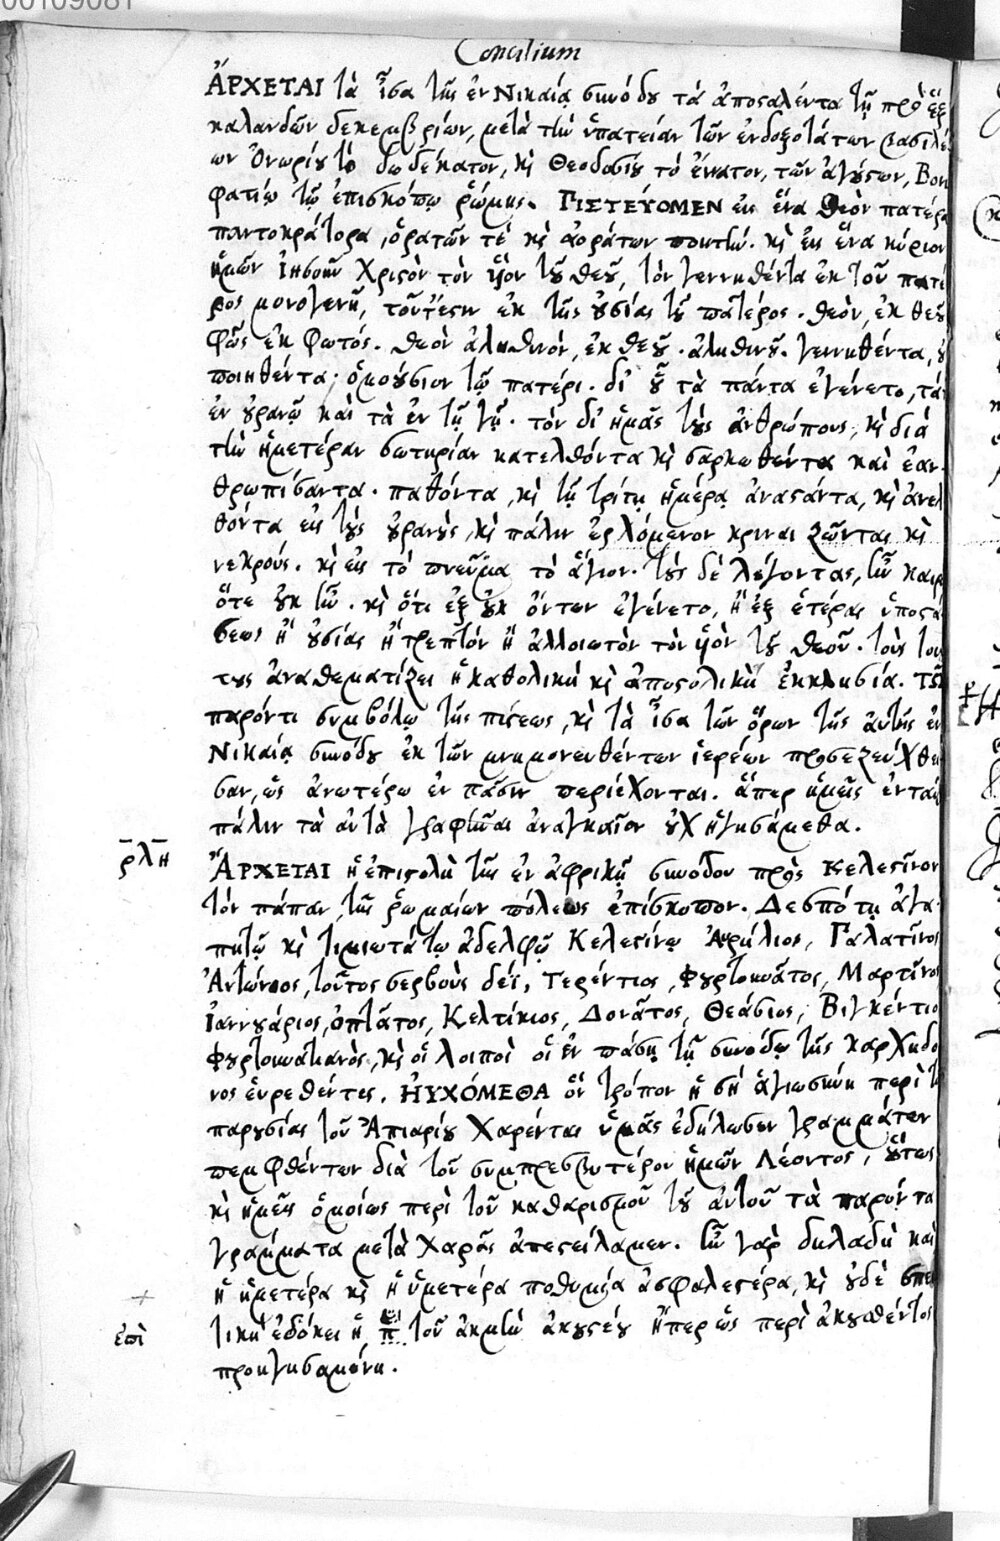 00109081
Concilium
ἌΡΧΕΤΑΙ τὰ ἶσα τῆς ἐν Νικαίᾳ συνόδου τὰ ἀποσταλέντα τῇ πρὸ ἓξ
καλανδῶν δεκεμβρίων, μετὰ τὴν ὑπατείαν τῶν ἐνδοξοτάτων βασιλέ
ων Ὀνωρίου τὸ δωδέκατον, κὶ Θεοδοσίου τὸ ἔννατον, τῶν ἀγούστων, Βονι
φατίῳ τῷ ἐπισκόπῳ ῥώμης. ΠΙΣΤΕΎΟΜΕΝ εἰς ἕνα θεὸν πατέρα
παντοκράτορα, ὁρατῶν τὲ κὶ ἀοράτων ποιητήν. κὶ εἰς ἕνα κύριον
ἡμῶν Ἰησοῦν Χριστὸν τὸν ὑὸν τοῦ θεοῦ, τὸν γεννηθέντα ἐκ τοῦ πατ
ρος μονογενῆ, τοῦτέστιν ἐκ τῆς οὐσίας τοῦ πατέρος. θεὸν, ἐκ θεοῦ
φῶς ἐκ φωτός. θεὸν ἀληθινὸν, ἐκ θεοῦ. ἀληθινοῦ. γεννηθέντα, οὐ
ποιηθέντα· ὁμοούσιον τῷ πατέρι. δι' οὗ τὰ πάντα ἐγένετο, τά
ἐν οὐρανῷ καὶ τὰ ἐν τῇ γῇ. τὸν δι' ἡμᾶς τοὺς ἀνθρώπους, κὶ διὰ
τὴν ἡμετέραν σωτηρίαν κατελθόντα κὶ σαρκωθέντα καὶ ἐαν
θρωπίσαντα. παθόντα, κὶ τῇ τρίτῃ ἡμέρᾳ ἀναστάντα, κὶ ἀνελ
θόντα εἰς τοὺς οὐρανοὺς, κὶ πάλιν ἐρχόμενον κριναι ζῶντας κὶ
νεκρούς. κὶ εἰς τὸ πνεῦμα τὸ ἅγιον. τοὺς δὲ λέγοντας, ἦν καιρ
ὅτε οὐκ ἦν. κὶ ὅτι ἐξ οὐκ ὄντων ἐγένετο, ἢ ἐξ ἑτέρας ὑποστά
σεως ἢ οὐσίας ἢ τρεπτὸν ἢ ἀλλοιωτὸν τὸν ὑὸν τοῦ θεοῦ. τοὺς τοι
τους ἀναθεματίζει ἡ καθολικὴ κὶ ἀποστολικὴ ἐκκλησία. Τῷ
παρόντι συμβόλῳ τῆς πίστεως, κὶ τὰ ἶσα τῶν ὅρων τῆς αὐτῆς ἐν
Νικαίᾳ συνόδου ἐκ τῶν μνημονευθέντων ἱερέων προσεζεύχθη
σαν, ὡς ἀνωτέρω ἐν πᾶσιν περιέχονται. ἅπερ ἡμεῖς ἐνταῦ
πάλιν τὰ αὐτὰ γραφῆναι ἀναγκαῖον οὐχ ἡγησάμεθα.
ρλη
ἌΡΧΕΤΑΙ ἡ ἐπιστολὴ τῆς ἐν ἀφρικῇ συνόδου πρὸς Κελεστῖνον
τὸν πάπαν τῆς ῥωμαίων πόλεως ἐπίσκοπον. Δεσπότῃ ἀγα
πητῷ κὶ τιμιωτάτῳ ἀδελφῷ Κελεστίνῳ Ἀυρήλιος, Γαλατῖνος
Ἀντώνιος, τοῦτος σερβοὺς δέϊ, Τερέντιος, Φουρτουνᾶτος, Μαρτῖνος
Ἰαννουάριος, ὀπτᾶτος, Κελτίκιος, Δονᾶτος, Θεάσιος, Βιγκέντιο
Φουρτουνατιανὸς, κὶ οἱ λοιποὶ οἱ ἐν πάσῃ τῇ συνόδῳ τῆς καρχηδο
νος ἑυρεθέντες. ΗΥΧΌΜΕΘΑ ὃν τρόπον ἡ σὴ ἁγιωσύνη περὶ τ
παρουσίας τοῦ Ἀπιαρίου Χαρένται ὑμᾶς ἐδήλωσεν γραμμάτων
πεμφθέντων διὰ τοῦ συμπρεσβυτέρου ἡμῶν Λέοντος, οὕτως
κὶ ἡμεῖς ὁμοίως περὶ τοῦ καθαρισμοῦ τοῦ αὐτοῦ τὰ παρόντα
γράμματα μετὰ χαρᾶς ἀπεστείλαμεν. ἦν γὰρ δηλαδὴ καὶ
ἡ ἡμετέρα κὶ ἡ ὑμετέρα ποθυμία ἀσφαλεστέρα, κὶ οὐδὲ σπε
τικὴ ἐδόκει ἡ τοῦ ἀκμὴν ἀκουστέου ἤπερ ὡς περὶ ἀκουσθέντος
ἐπὶ
προηγησαμένη.